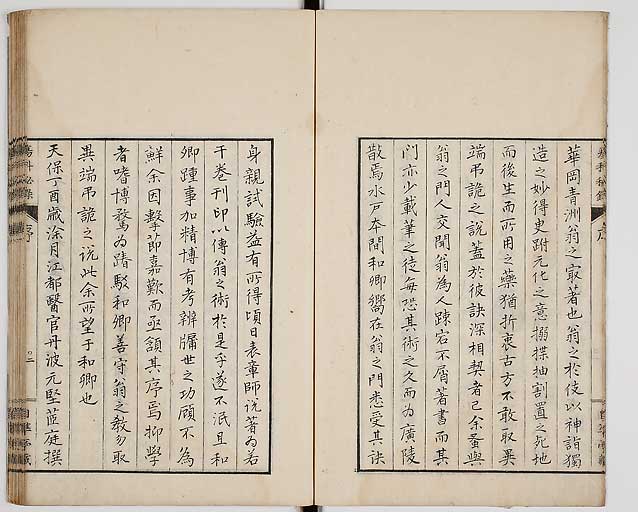 華岡青洲翁之冣著也翁之於伎以神詣獨
造之妙得史跗元化之意搦揲抽割置之死地
而後生而所用之藥猶折衷古方不敢取異
端弔詭之說蓋於彼訣深相契者已余曩與
翁之門人交聞翁為人疎宕不屑著書而其
門亦少載筆之徒每恐其術之久而為廣陵
散焉水戶本間和卿嚮在翁之門悉受其訣
身親試驗益有所得頃日表章師說著為若
干卷刊印以傳翁之術於是乎遂不泯且和
卿踵事加精博有考辨牖世之功顧不為
鮮余因擊節嘉歎而亟頟其序焉抑學
者嗜博騖為踳駁和卿善守翁之教勿取
異端弔詭之說此余所望于和卿也
天保丁酉歲涂月江都醫官丹波元堅藍庭撰
瘍科秘錄
序
瘍科秘錄
序
○二
自準亭藏